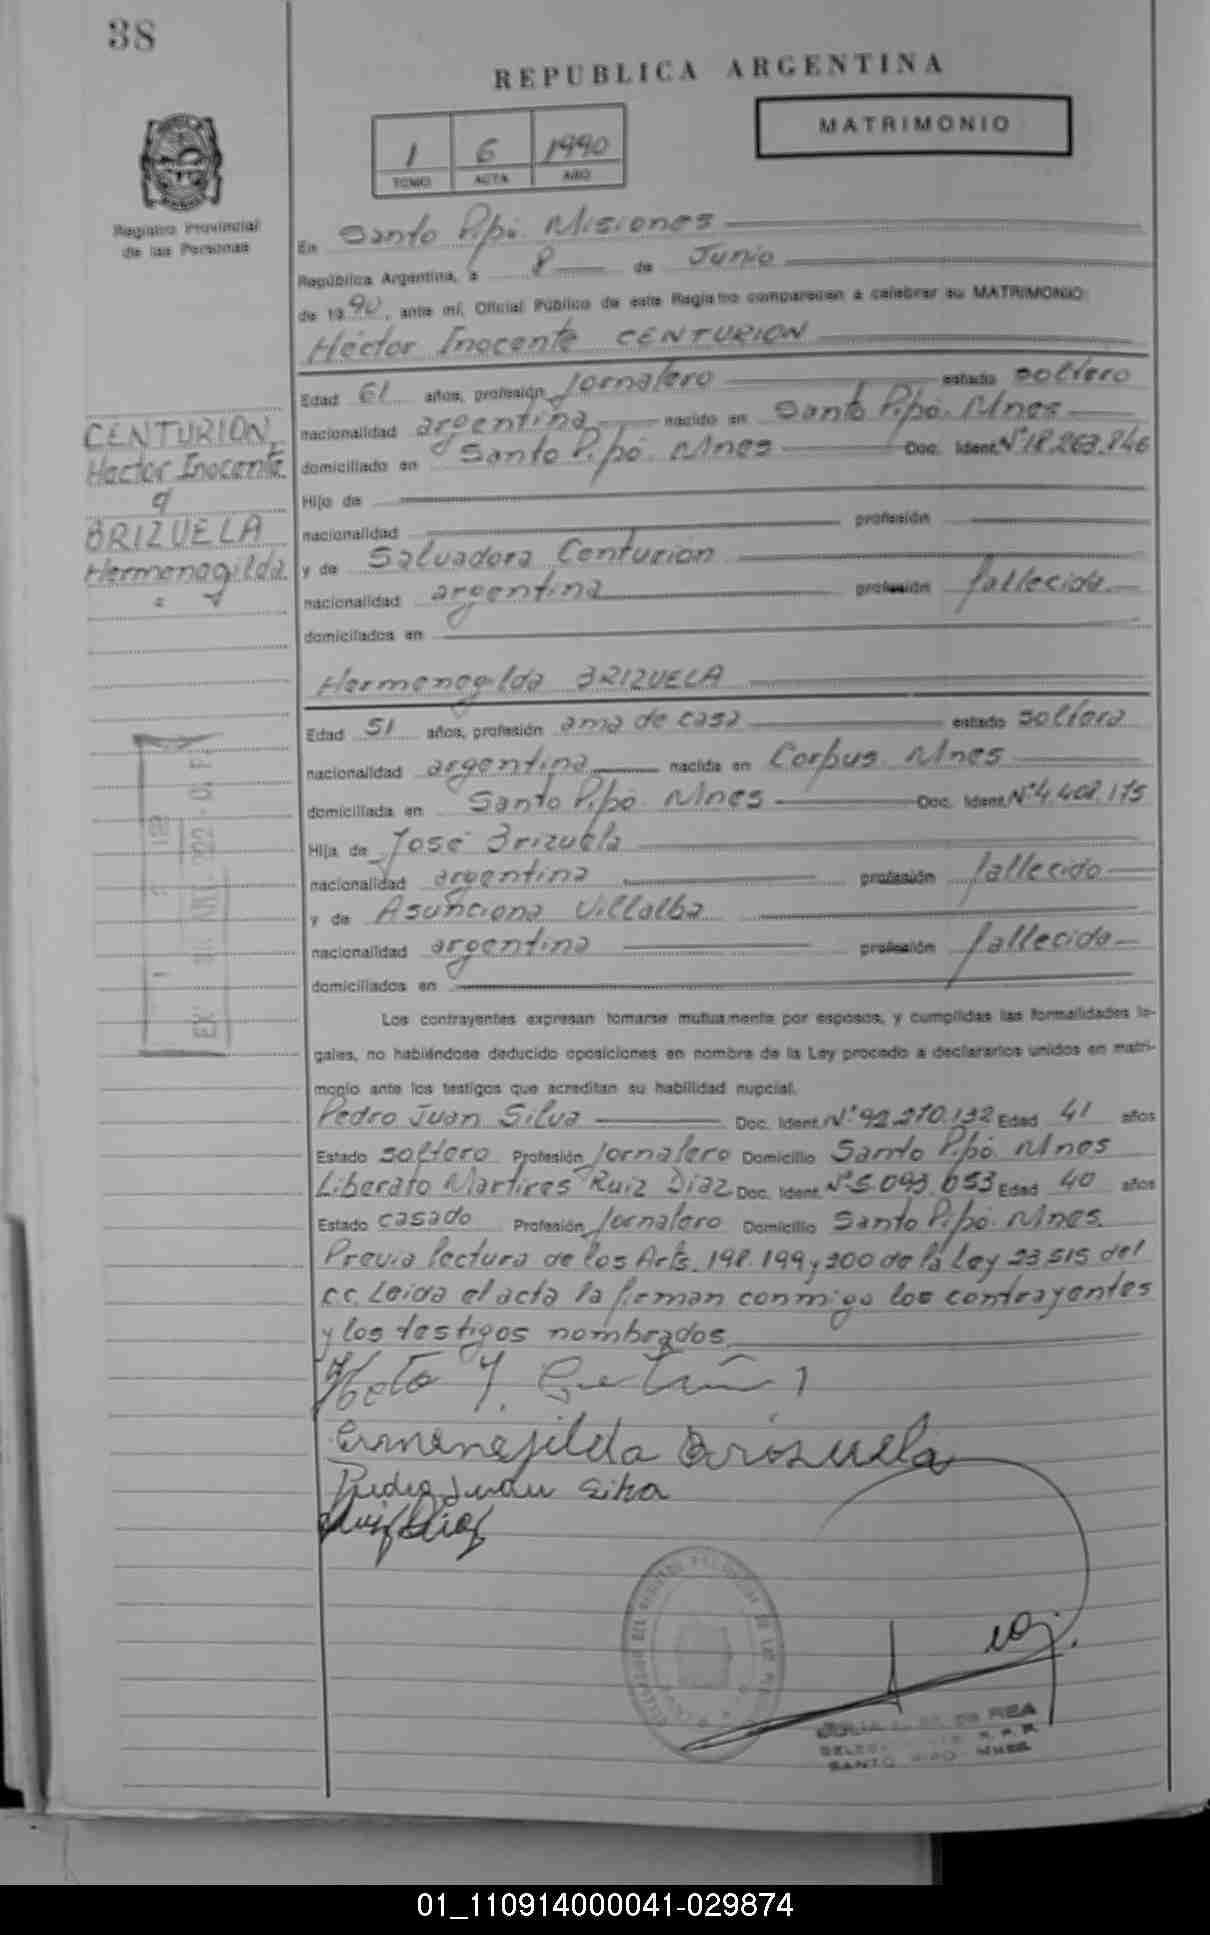 38
REPUBLICA ARGENTINA
MATRIMONIO
1 6 1990
TOMO ACTA AÑO
Registro Provincial
de las Personas
En Santo Pipó. Misiones
República Argentina, a 8 de Junio
de 1990, ante mí, Oficial Público de este Registro comparecen a celebrar su MATRIMONIO:
Héctor Inocente CENTURION
Edad 61 años, profesión Jornalero estado soltero
nacionalidad argentina nacido en Santo Pipó. Mnes
domiciliado en Santo Pipó. Mnes Doc. Ident. Nº 18.263.846
Hijo de
nacionalidad profesión
y de Salvadora Centurion
nacionalidad argentina profesión fallecida
domiciliados en
CENTURION,
Hector Inocente
y
BRIZUELA
Hermenegilda
Hermenegilda BRIZUELA
Edad 51 años, profesión ama de casa estado soltera
nacionalidad argentina nacida en Corpus. Mnes
domiciliada en Santo Pipó. Mnes Doc. Ident. Nº 4.408.175
Hija de José Brizuela
nacionalidad argentina profesión fallecido
y de Asunciona Villalba
nacionalidad argentina profesión fallecida
domiciliados en
Los contrayentes expresan tomarse mutuamente por esposos, y cumplidas las formalidades le-
gales, no habiéndose deducido oposiciones en nombre de la Ley procedo a declararlos unidos en matri-
monio ante los testigos que acreditan su habilidad nupcial.
Pedro Juan Silva Doc. Ident. Nº 92.270.132 Edad 41 años
Estado soltero Profesión Jornalero Domicilio Santo Pipó. Mnes
Liberato Martires Ruiz Diaz Doc. Ident. Nº 5.093.053 Edad 40 años
Estado casado Profesión Jornalero Domicilio Santo Pipó. Mnes.
Previa lectura de los Arts. 198. 199 y 200 de la Ley 23515 del
c.c. Leida el acta la firman conmigo los contrayentes
y los testigos nombrados.
Ermenejilda Brisuela
Pedro Juan Silva
Ruiz Diaz
DE REA
SANTO PIPO MNES
01_110914000041-029874